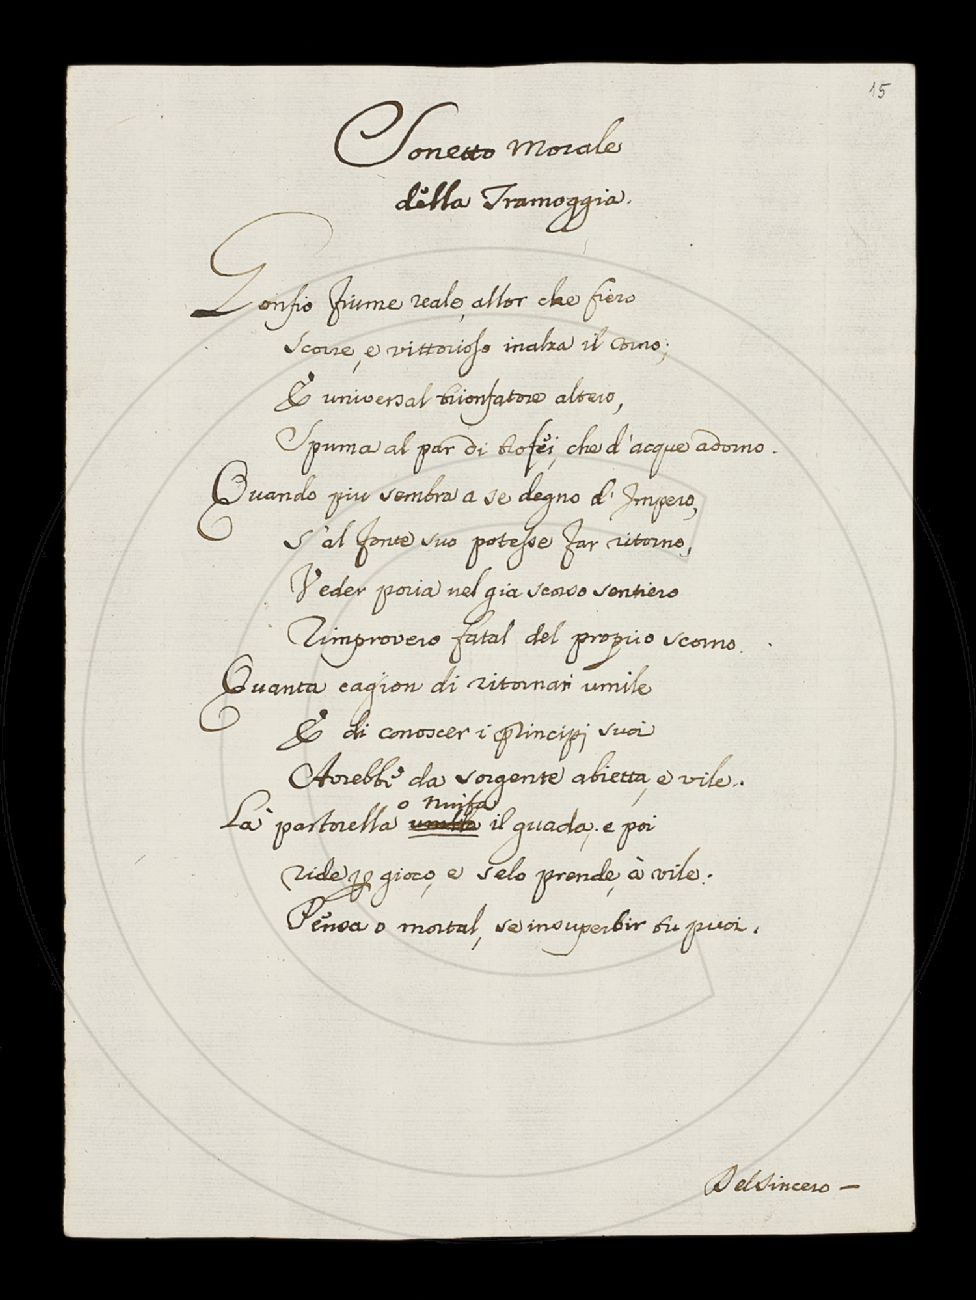 15
Sonetto Morale
della Tramoggia.
Gonfio fiume reale, allor che fiero
Scorre, e vittorioso inalza il corno;
E universal trionfatore altero,
Spuma al par di trofei, che d'acque adorno.
Quando piu sembra a se degno d'Impero,
S'al fonte suo potesse far ritorno,
Veder poria nel gia scorso sentiero
Rimprovero fatal del proprio scorno.
Quanta cagion di ritornar umile
E di conoscer i principj suoi
Avrebbe da sorgente abietta, e vile.
o Ninfa
La pastorella il guada, e poi
ride per gioco, e selo prende, à vile.
Pensa o mortal, se insuperbir tu puoi.
Del Sincero —